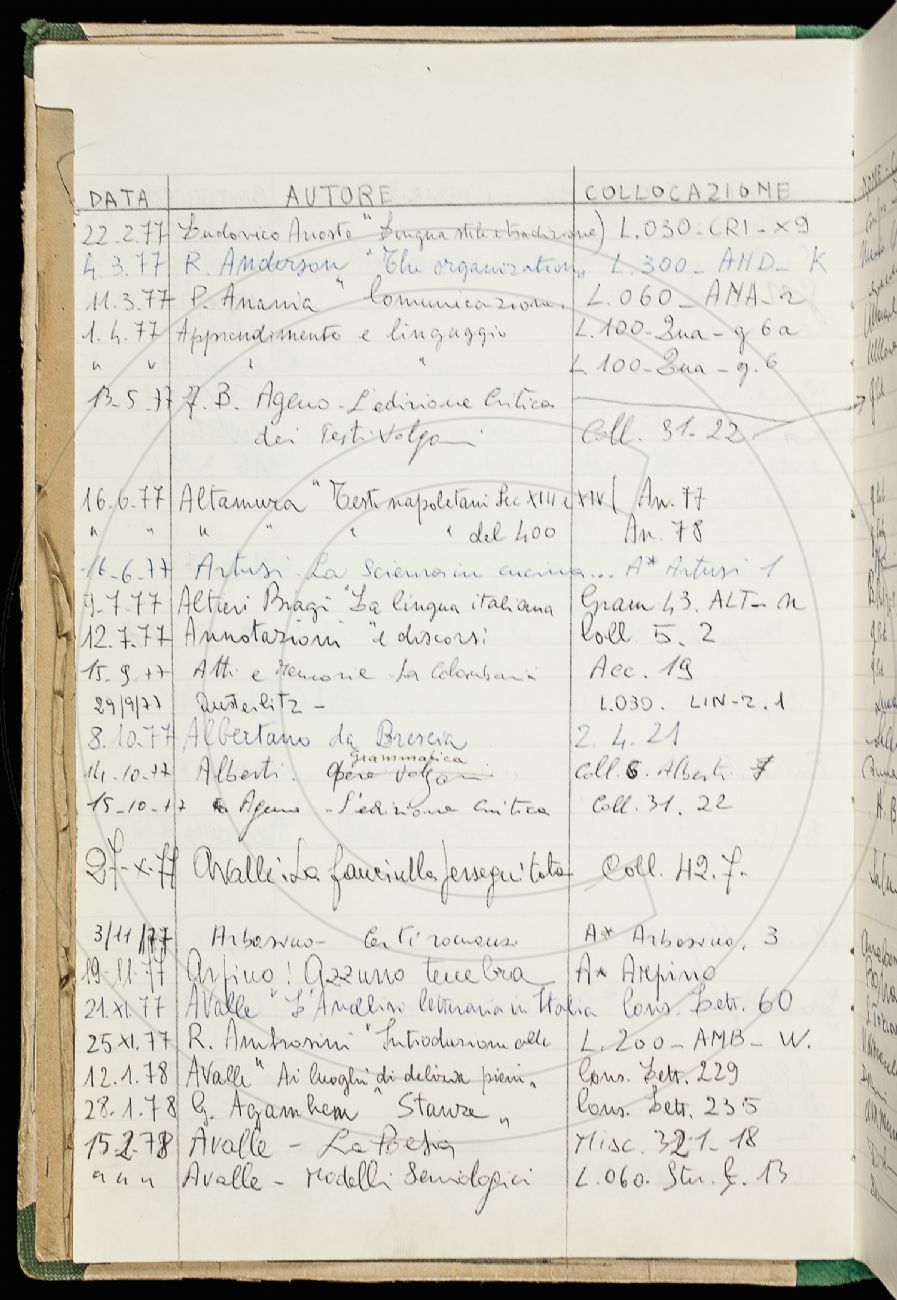 DATA AUTORE COLLOCAZIONE
22.2.77 Ludovico Ariosto "Lingua stile e tradizione) L.030-CRI-X9
4.3.77 R. Anderson "The organization" L.300_AND_K
11.3.77 P. Anania "Comunicazione" L.060_ANA_r
1.4.77 Apprendimento e linguaggio L.100-Qua-q 6a
" " " " L.100-Qua-q.6
13-5-77 F. B. Ageno - L'edizione Critica
dei Testi Volgari Coll. 31-22
16.6.77 Altamura "Testi napoletani Sec XIII e XIV( An. 77
" " " " " " del 400 An. 78
16-6-77 Artusi La Scienza in cucina... A* Artusi 1
9-7-77 Altieri Biagi "La lingua italiana Gram 43. ALT-
12.7.77 Annotazioni "e discorsi Coll. 5. 2
15-9-77 Atti e Memorie La Colombaria Acc. 19
29/9/77 Austerlitz - L.030. LIN-2.1
8.10.77 Albertano da Brescia 2. 4. 21
grammatica
14-10-77 Alberti. Opere Volgari Coll. 6. Alberti 7
15-10-77 Ageno - L'edizione Critica Coll. 31. 22
27-X-77 Avalle: La fanciulla perseguitata Coll. 42.7.
3/11/77 Arbasino - Certi romanzi A* Arbasino. 3
19-11-77 Arpino! Azzurro tenebra A* Arpino
21.XI.77 Avalle "L'Analisi letteraria in Italia Cons. Lett. 60
25XI.77 R. Ambrosini "Introduzione alla L. 200-AMB-W.
12.1.78 Avalle "Ai luoghi di delizia pieni" Cons. Lett. 229
28.1.78 G. Agamben "Stanze" Cons. Lett. 235
15.2.78 Avalle - La Poesia Misc. 321-18
" " " Avalle - Modelli Semiologici L.060. Str. 13